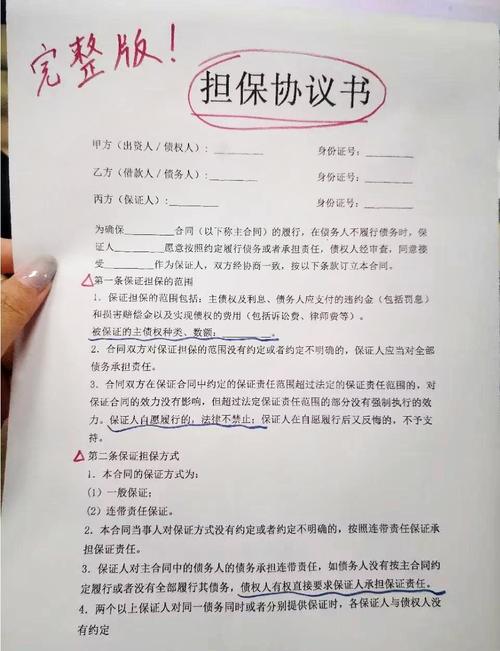 完整版！
担保协议书
甲方（出资人/债权人）：________ 身份证号：________
乙方（借款人/债务人）：________ 身份证号：________
丙方（保证人）：________ 身份证号：________
为确保________合同（以下称主合同）的履行，在债务人不履行债务时，保
证人________愿意按照约定履行债务或者承担责任，债权人经审查，同意接
受________作为保证人，双方经协商一致，按以下条款订立本合同。
第一条保证担保的范围
1．保证担保的范围包括：主债权及利息、债务人应支付的违约金（包括罚息）
和损害赔偿金以及实现债权的费用（包括诉讼费、律师费等）。
被保证的主债权种类、数额：________。
2．合同双方对保证担保的范围没有约定或者约定不明确的，保证人应当对全部
债务承担责任。
3．合同双方在保证合同中约定的保证责任范围超过法定的保证责任范围的，对
保证合同的效力没有影响，但超过法定保证范围的部分没有强制执行的效
力。保证人自愿履行的，法律不禁止；保证人在自愿履行后又反悔的，不予支
持。
第二条保证担保方式
1．本合同的保证方式为：
(1) 一般保证；
(2) 连带责任保证。
2．本合同当事人对保证方式没有约定或者约定不明确的，按照连带责任保证承
担保证责任。
3．保证人对主合同中的债务人的债务承担连带责任，如债务人没有按主合同约
定履行或者没有全部履行其债务，债权人有权直接要求保证人承担保证责任。
4．两个以上保证人对同一债务同时或者分别提供保证时，各保证人与债权人没
有约定